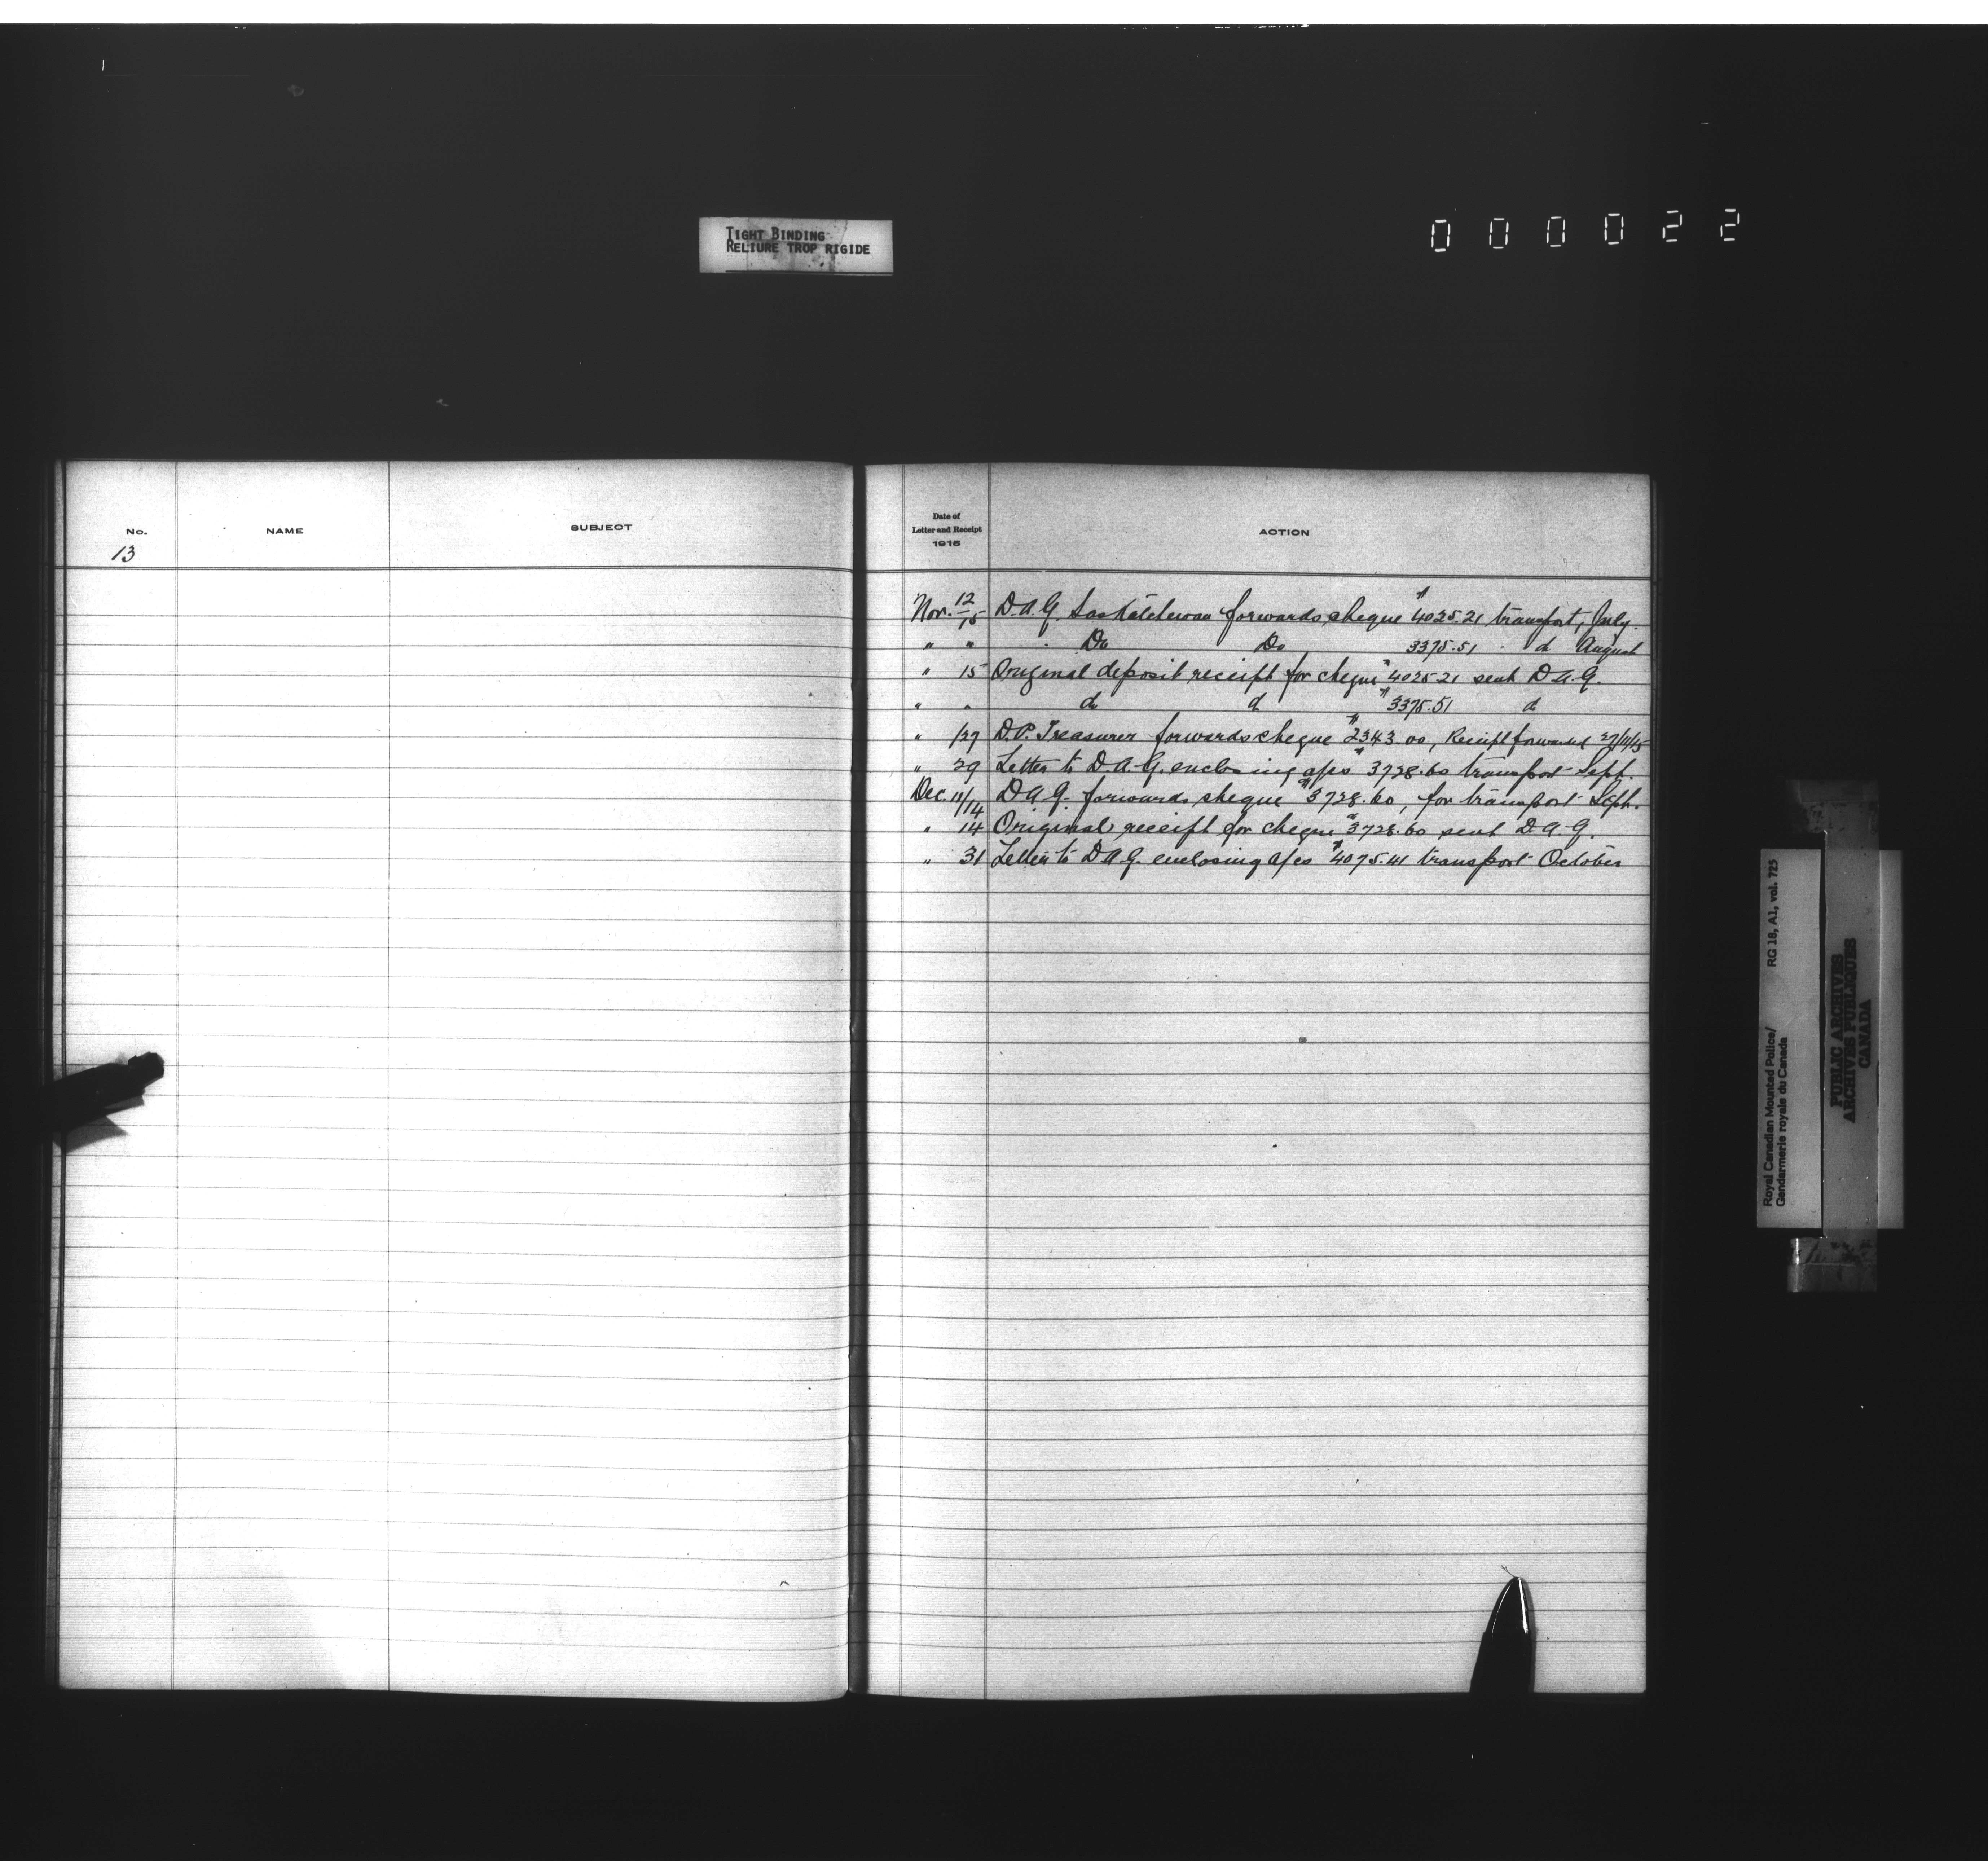 TIGHT BINDING
RELIURE TROP RIGIDE
000022
No.
NAME
SUBJECT
13
Date of
Letter and Receipt
1915
ACTION
Nov. 12/15 D.A.G. Saskatchewan forwards cheque $4025.21 transport, July.
" " Do Do 3375.51 do August
" 15 Original deposit receipt for cheque $4025.21 sent D.A.G.
" " do do $3375.51 do
" /27 D.P. Treasurer forwards cheque $2343.00, Receipt forwarded 27/11/15
" 29 Letter to D.A.G. enclosing a/cs $3728.60 transport Sept.
Dec. 11/14 D.A.G. forwards cheque $3728.60, for transport Sept.
" 14 Original receipt for cheque $3728.60 sent D.A.G.
" 31 Letter to D.A.G. enclosing a/cs $4075.41 transport October
Royal Canadian Mounted Police/ RG 18, A1, vol. 725
Gendarmerie royale du Canada
PUBLIC ARCHIVES
ARCHIVES PUBLIQUES
CANADA